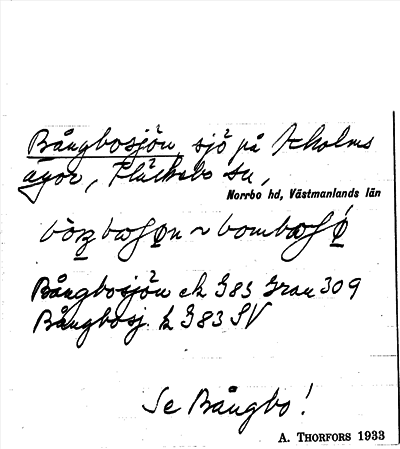 Bångbosjön, sjö på Äholms
ägor, Fläckebo sn,
Norrbo hd, Västmanlands län
Bångbosjön ek G83 Gran 309
Bångbosj. k G83 SV
Se Bångbo!
A. THORFORS 1933